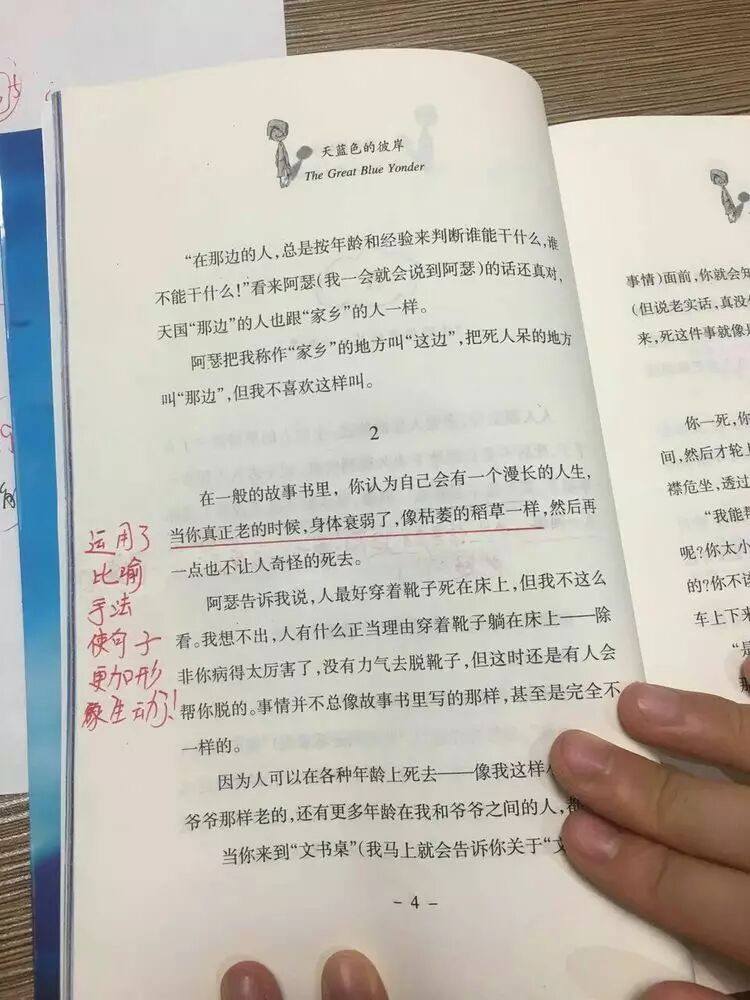 天蓝色的彼岸
The Great Blue Yonder
“在那边的人,总是按年龄和经验来判断谁能干什么,谁
不能干什么!”看来阿瑟(我一会就会说到阿瑟)的话还真对,
天国“那边”的人也跟“家乡”的人一样。
阿瑟把我称作“家乡”的地方叫“这边”,把死人呆的地方
叫“那边”,但我不喜欢这样叫。
2
在一般的故事书里,你认为自己会有一个漫长的人生,
当你真正老的时候,身体衰弱了,像枯萎的稻草一样,然后再
一点也不让人奇怪的死去。
阿瑟告诉我说,人最好穿着靴子死在床上,但我不这么
看。我想不出,人有什么正当理由穿着靴子躺在床上——除
非你病得太厉害了,没有力气去脱靴子,但这时还是有人会
帮你脱的。事情并不总像故事书里写的那样,甚至是完全不
一样的。
因为人可以在各种年龄上死去——像我这样
爷爷那样老的,还有更多年龄在我和爷爷之间的人,都
当你来到“文书桌”(我马上就会告诉你关于“文
- 4 -
运用了
比喻
手法
使句子
更加形
象生动了!
事情)面前,你就会知
(但说老实话,真没
来,死这件事就像是
你一死,你
间,然后才轮上
襟危坐,透过
“我能帮
呢?你太小
的?你不该
车上下来
“是
那